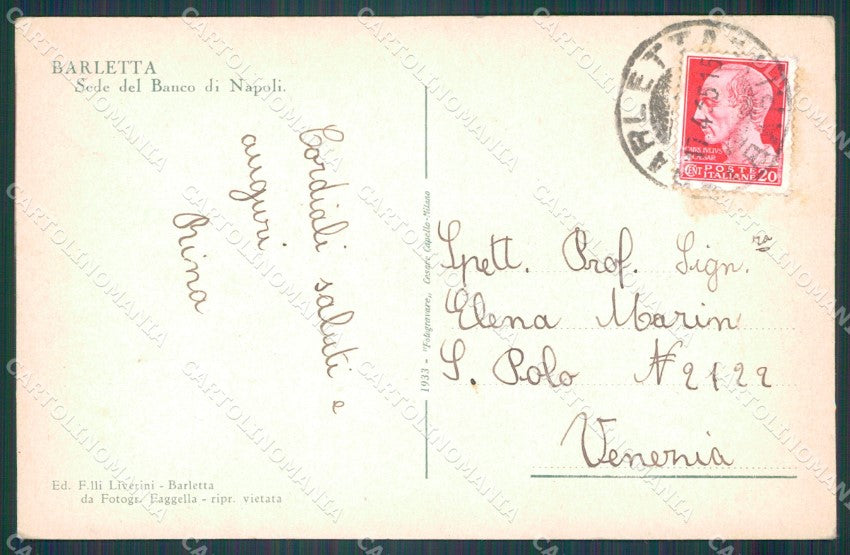 BARLETTA
Sede del Banco di Napoli.
Cordiali saluti e
auguri
Rina
1933 - "Fotogravure,, Cesare Capello-Milano
Ed. F.lli Liverini - Barletta
da Fotogr. Faggella - ripr. vietata
BARLETTA
CENT 20
POSTE
ITALIANE
Spett. Prof. Sign.ra
Elena Marin
S. Polo N 2122
Venezia
CARTOLINOMANIA